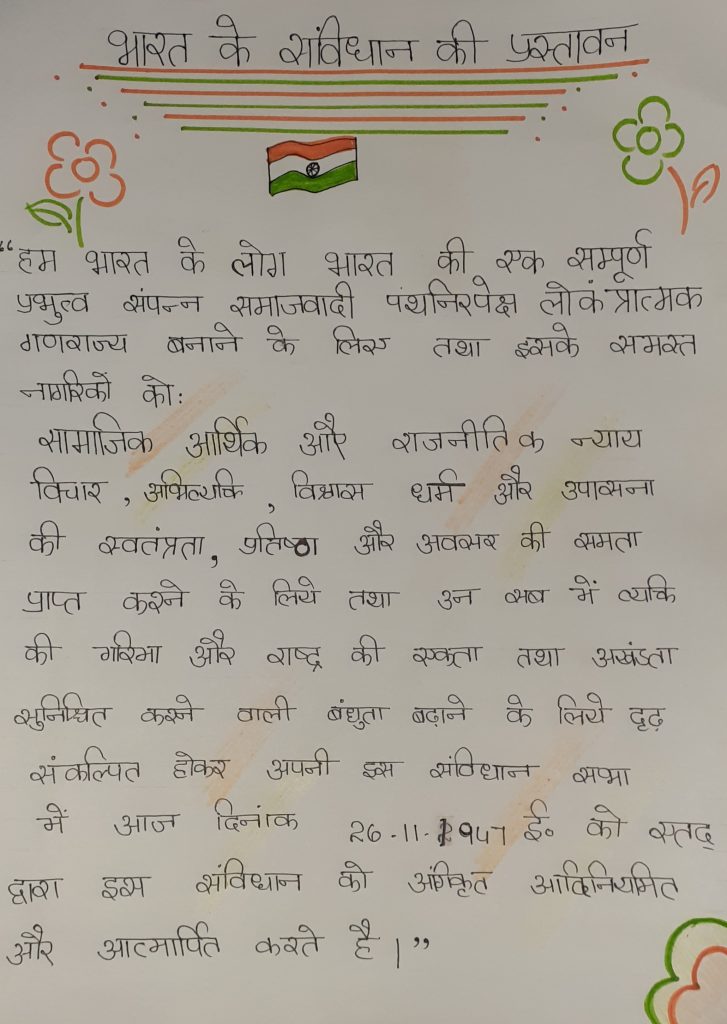 भारत के संविधान की प्रस्तावन
“हम भारत के लोग भारत की एक सम्पूर्ण
प्रभुत्व संपन्न समाजवादी पंथनिरपेक्ष लोकंत्रात्मक
गणराज्य बनाने के लिए तथा इसके समस्त
नागरिकों को:
सामाजिक आर्थिक और राजनीतिक न्याय
विचार, अभिव्यकि, विश्वास धर्म और उपासना
की स्वतंत्रता, प्रतिष्ठा और अवसर की समता
प्राप्त करने के लिये तथा उन सब में व्यकि
की गरिमा और राष्ट्र की एकता तथा अखंडता
सुनिश्चित करने वाली बंधुता बढ़ाने के लिये दृढ़
संकल्पित होकर अपनी इस संविधान सभा
में आज दिनांक 26-11-1947 ई० को एतद्
द्वारा इस संविधान को अंगिकृत आदिनियमित
और आत्मार्पित करते है।”